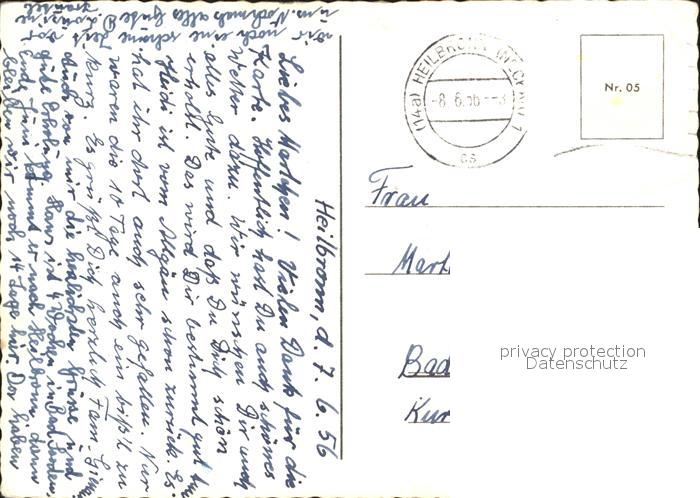 Heilbronn, d. 7. 6. 56
Liebes Marlchen! Vielen Dank für die
Karte. Hoffentlich hast Du auch schönes
Wetter dazu. Wir wünschen Dir auch
alles Gute und daß Du Dich schön
erholst. Das wird Dir bestimmt gut tun.
Heidi ist vom Allgäu schon zurück. Es
hat ihr dort auch sehr gefallen. Nur
waren die 10 Tage auch ein biß'l zu
kurz. Es grüßt Dich herzlich Fam.
Auch von mir die herzlichsten Grüße und
gute Erholung. Hans ist 4 Wochen in Bad
Ende Juni kommt er nach Heilbronn, dann
bleiben wir noch 14 Tage hier. Dann haben
wir noch eine schöne Zeit vor
uns. Nochmals alles Gute
(14a) HEILBRONN (NECKAR) 1
-8.6.56--
cs
Nr. 05
Frau
Mart
Bad
Kur
privacy protection
Datenschutz